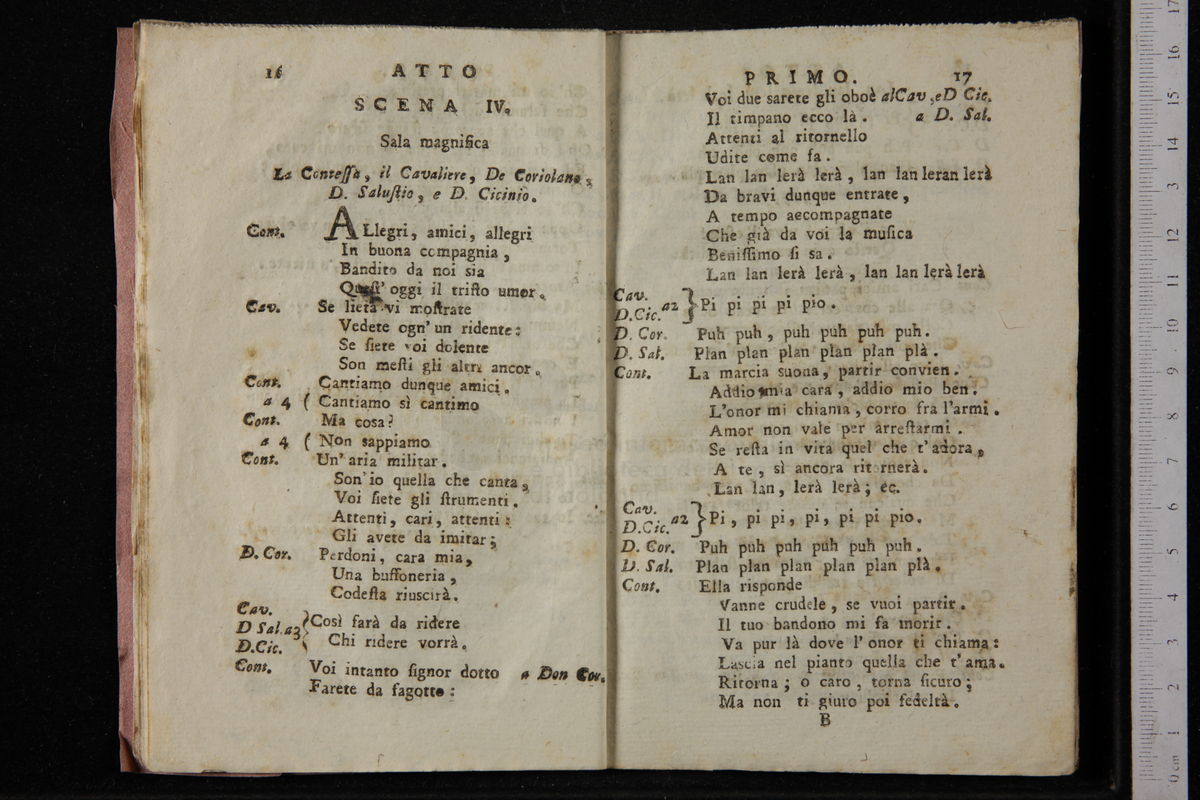 16
ATTO
SCENA IV.
Sala magnifica
La Contessa, il Cavaliere, De Coriolano,
D. Salustio, e D. Cicinio.
Cont. ALlegri, amici, allegri
In buona compagnia,
Bandito da noi sia
Quest' oggi il tristo umor.
Cav. Se lieta vi mostrate
Vedete ogn' un ridente:
Se siete voi dolente
Son mesti gli altri ancor.
Cont. Cantiamo dunque amici.
a 4 ( Cantiamo sì cantimo
Cont. Ma cosa?
a 4 ( Non sappiamo
Cont. Un' aria militar.
Son' io quella che canta,
Voi siete gli strumenti.
Attenti, cari, attenti:
Gli avete da imitar;
D. Cor. Perdoni, cara mia,
Una buffoneria,
Codesta riuscirà.
Cav.
D Sal. a3 } Così farà da ridere
D. Cic. Chi ridere vorrà.
Cont. Voi intanto signor dotto a Don Cor.
Farete da fagotto:
PRIMO. 17
Voi due sarete gli oboè al Cav, e D Cic.
Il timpano ecco là. a D. Sal.
Attenti al ritornello
Udite come fa.
Lan lan lerà lerà, lan lan leran lerà
Da bravi dunque entrate,
A tempo aecompagnate
Che già da voi la musica
Benissimo si sa.
Lan lan lerà lerà, lan lan lerà lerà
Cav.
D. Cic. a2 } Pi pi pi pi pio.
D. Cor. Puh puh, puh puh puh puh.
D. Sal. Plan plan plan plan plan plà.
Cont. La marcia suona, partir convien.
Addio mia cara, addio mio ben.
L'onor mi chiama, corro fra l'armi.
Amor non vale per arrestarmi.
Se resta in vita quel che t'adora,
A te, sì ancora ritornerà.
Lan lan, lerà lerà; ec.
Cav.
D. Cic. a2 } Pi, pi pi, pi, pi pi pio.
D. Cor. Puh puh puh puh puh puh.
D. Sal. Plan plan plan plan plan plà.
Cont. Ella risponde
Vanne crudele, se vuoi partir.
Il tuo bandono mi fa morir.
Va pur là dove l' onor ti chiama:
Lascia nel pianto quella che t' ama.
Ritorna; o caro, torna sicuro;
Ma non ti giuro poi fedeltà.
B
0 cm 1 2 3 4 5 6 7 8 9 10 11 12 13 14 15 16 17